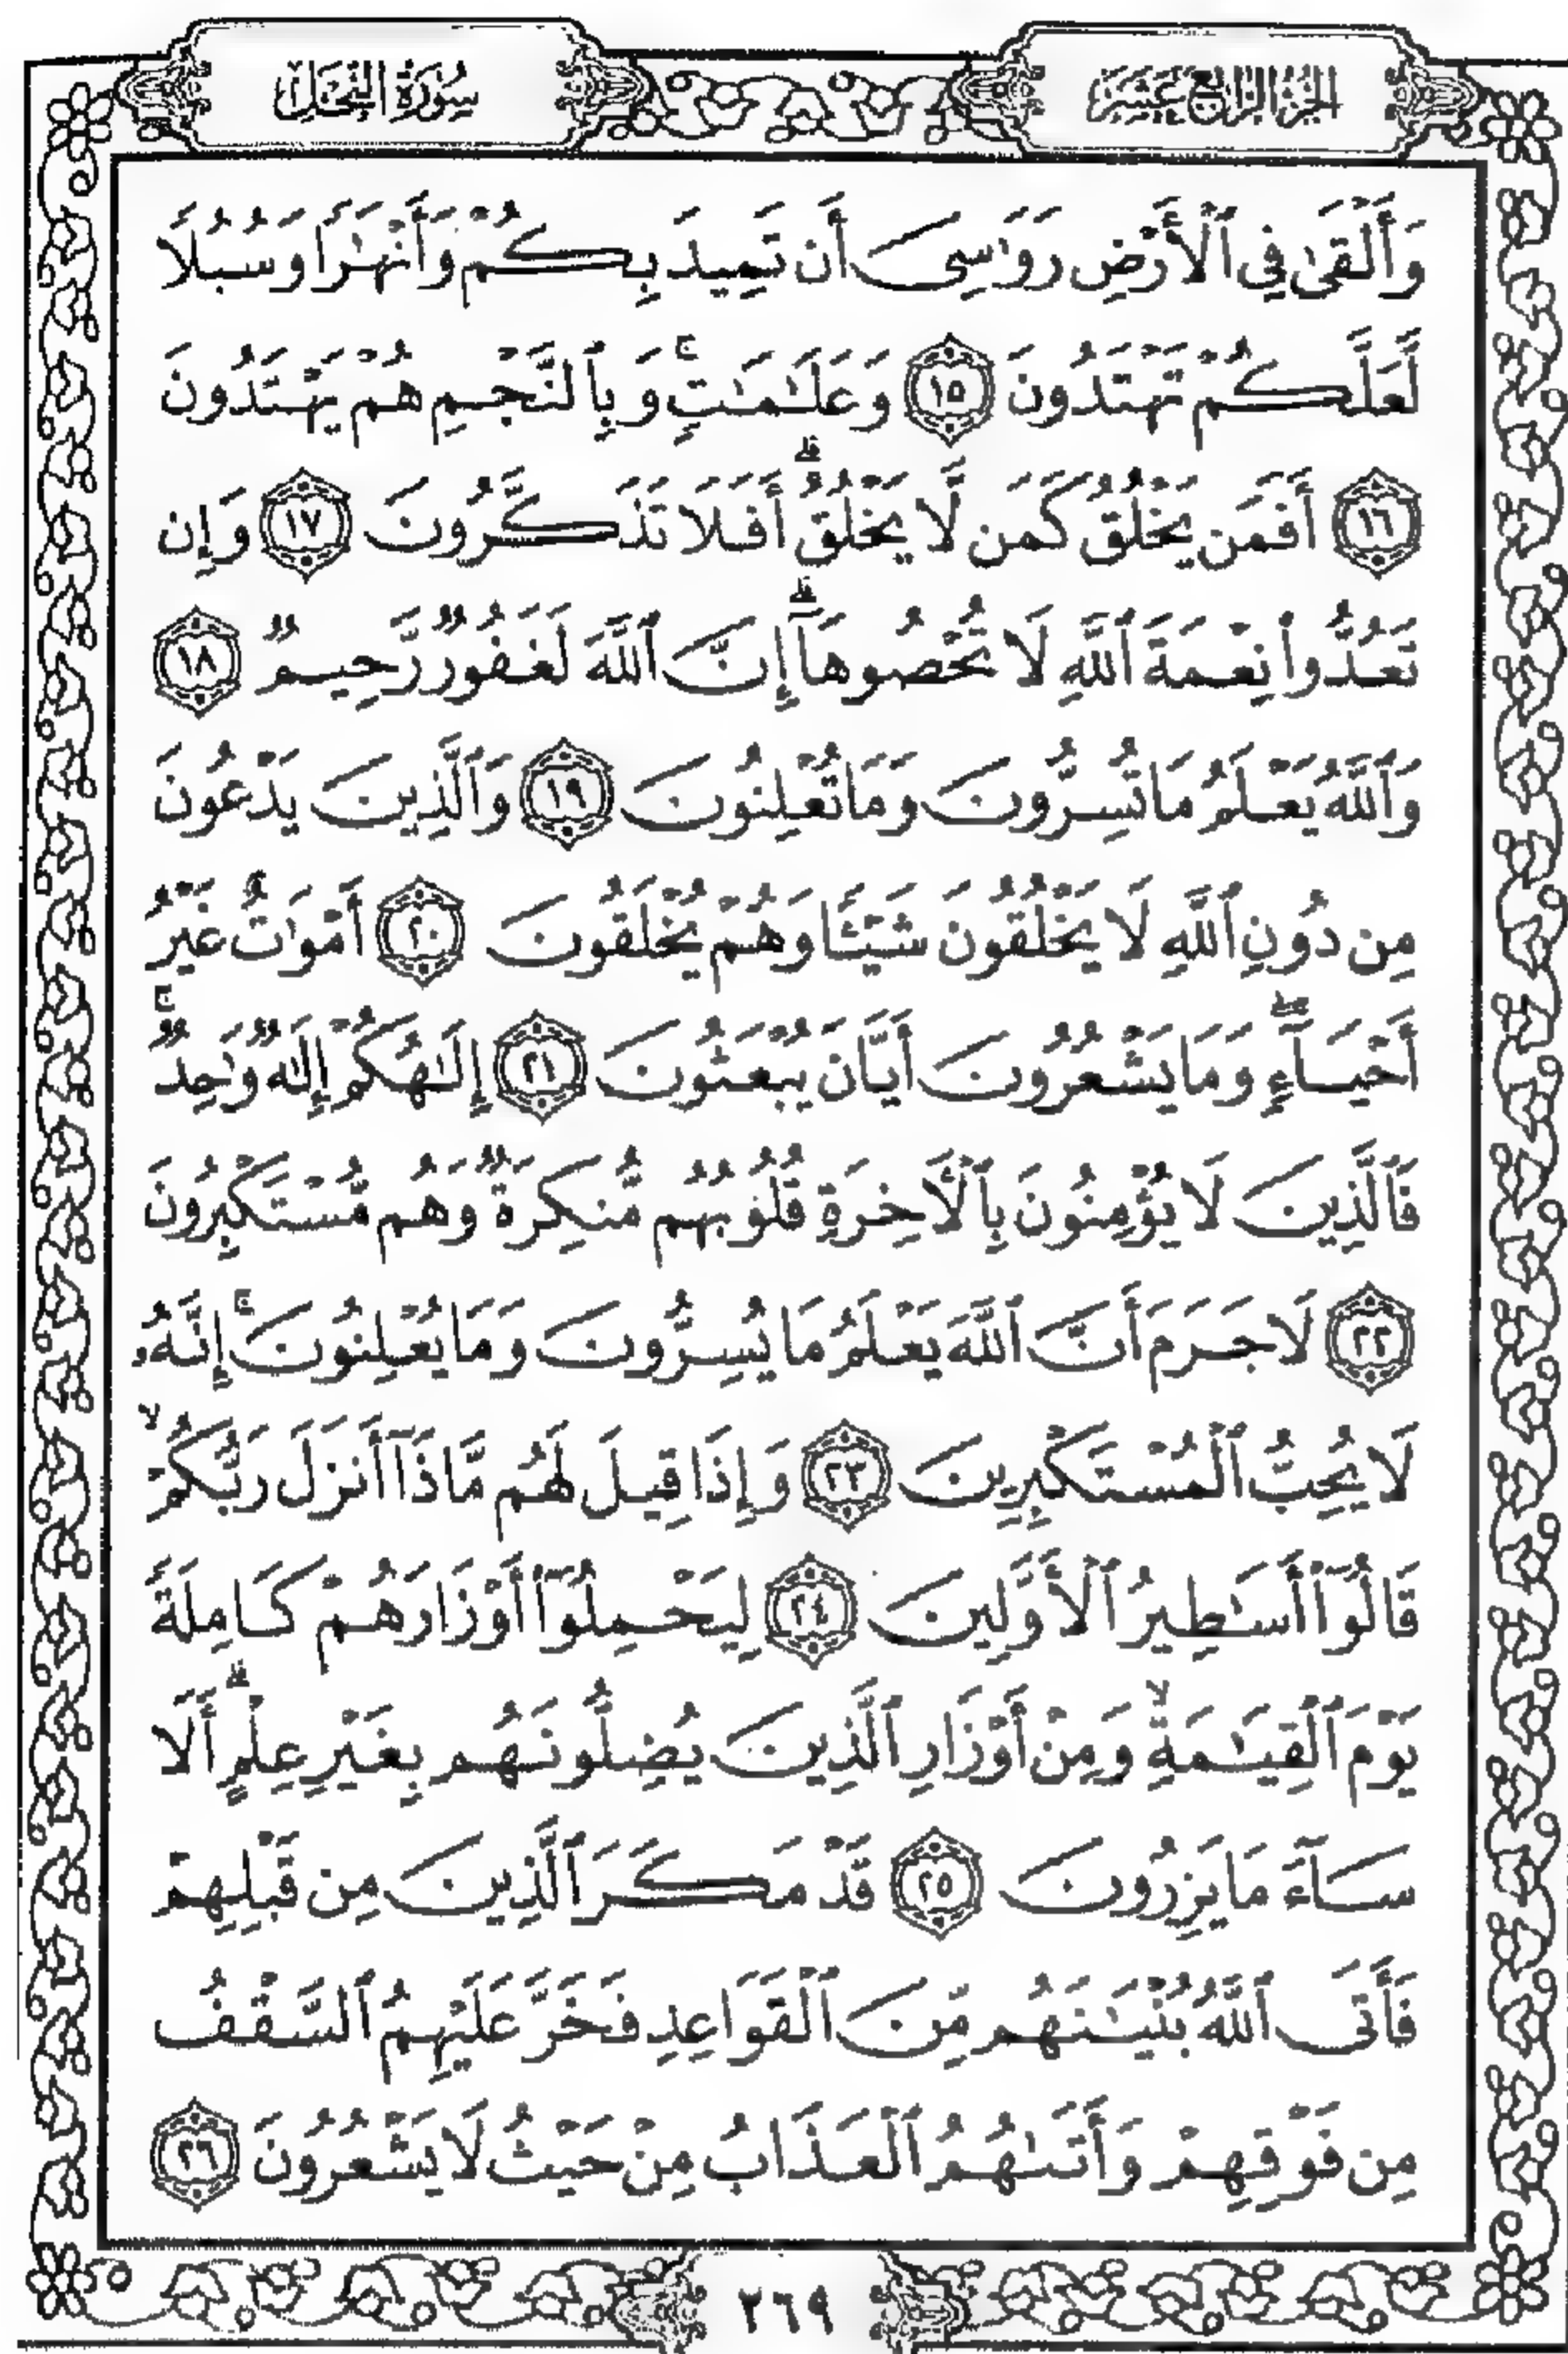 الجزء الرابع عشر
سورة النحل
وَأَلْقَىٰ فِي ٱلْأَرْضِ رَوَٰسِيَ أَن تَمِيدَ بِكُمْ وَأَنْهَٰرًا وَسُبُلًا
لَّعَلَّكُمْ تَهْتَدُونَ ١٥ وَعَلَٰمَٰتٍۚ وَبِٱلنَّجْمِ هُمْ يَهْتَدُونَ
١٦ أَفَمَن يَخْلُقُ كَمَن لَّا يَخْلُقُۗ أَفَلَا تَذَكَّرُونَ ١٧ وَإِن
تَعُدُّوا۟ نِعْمَةَ ٱللَّهِ لَا تُحْصُوهَآۗ إِنَّ ٱللَّهَ لَغَفُورٌ رَّحِيمٌ ١٨
وَٱللَّهُ يَعْلَمُ مَا تُسِرُّونَ وَمَا تُعْلِنُونَ ١٩ وَٱلَّذِينَ يَدْعُونَ
مِن دُونِ ٱللَّهِ لَا يَخْلُقُونَ شَيْـًٔا وَهُمْ يُخْلَقُونَ ٢٠ أَمْوَٰتٌ غَيْرُ
أَحْيَآءٍۖ وَمَا يَشْعُرُونَ أَيَّانَ يُبْعَثُونَ ٢١ إِلَٰهُكُمْ إِلَٰهٌ وَٰحِدٌۚ
فَٱلَّذِينَ لَا يُؤْمِنُونَ بِٱلْأَخِرَةِ قُلُوبُهُم مُّنكِرَةٌ وَهُم مُّسْتَكْبِرُونَ
٢٢ لَا جَرَمَ أَنَّ ٱللَّهَ يَعْلَمُ مَا يُسِرُّونَ وَمَا يُعْلِنُونَۚ إِنَّهُۥ
لَا يُحِبُّ ٱلْمُسْتَكْبِرِينَ ٢٣ وَإِذَا قِيلَ لَهُم مَّاذَآ أَنزَلَ رَبُّكُمْۙ
قَالُوٓا۟ أَسَٰطِيرُ ٱلْأَوَّلِينَ ٢٤ لِيَحْمِلُوٓا۟ أَوْزَارَهُمْ كَامِلَةً
يَوْمَ ٱلْقِيَٰمَةِۙ وَمِنْ أَوْزَارِ ٱلَّذِينَ يُضِلُّونَهُم بِغَيْرِ عِلْمٍۗ أَلَا
سَآءَ مَا يَزِرُونَ ٢٥ قَدْ مَكَرَ ٱلَّذِينَ مِن قَبْلِهِمْ
فَأَتَى ٱللَّهُ بُنْيَٰنَهُم مِّنَ ٱلْقَوَاعِدِ فَخَرَّ عَلَيْهِمُ ٱلسَّقْفُ
مِن فَوْقِهِمْ وَأَتَىٰهُمُ ٱلْعَذَابُ مِنْ حَيْثُ لَا يَشْعُرُونَ ٢٦
٢٦٩